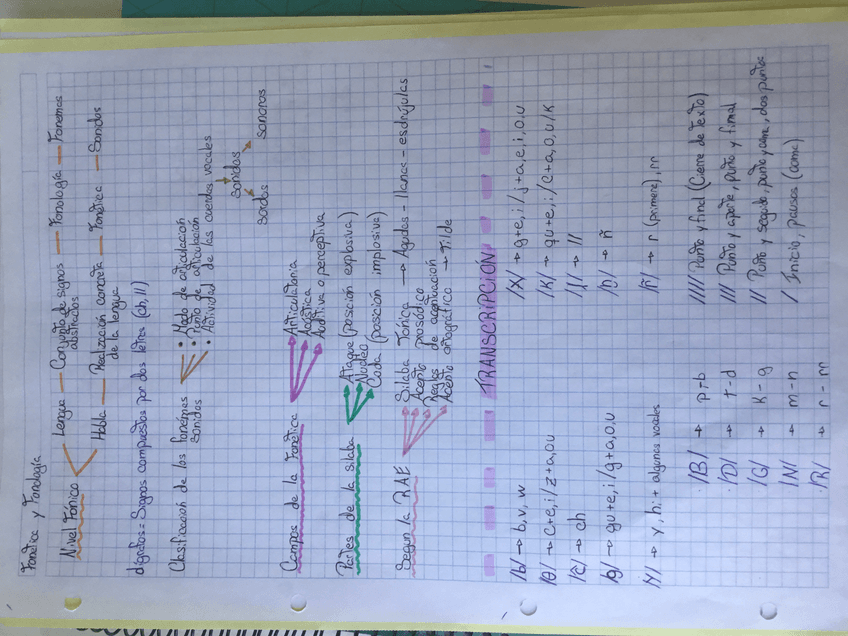 Fonética y Fonología
Nivel Fónico
Lengua — Conjunto de signos abstractos — Fonología — Fonemas
Habla — Realización concreta de la lengua — Fonética — Sonidos
dígrafos = Signos compuestos por dos letras (ch, ll)
Clasificación de los fonemas
sonidos
• Modo de articulación
• Punto de articulación
• Actividad de las cuerdas vocales
sonidos
sordas
sonoras
Campos de la Fonética
Articulatoria
Acústica
Auditiva o perceptiva
Partes de la sílaba
Ataque (posición explosiva)
Núcleo
Coda (posición implosiva)
Según la RAE
Sílaba Tónica → Agudas - llanas - esdrújulas
Acento prosódico
Reglas de acentuación
Acento ortográfico → Tilde
TRANSCRIPCIÓN
/b/ → b, v, w
/θ/ → c+e, i / z+a, o, u
/ĉ/ → ch
/g/ → gu+e, i / g+a, o, u
/y/ → y, hi + algunas vocales
/x/ → g+e, i / j+a, e, i, o, u
/k/ → qu+e, i / c+a, o, u / k
/ʃ/ → ll
/ŋ/ → ñ
/r̄/ → r (primera), rr
/B/ → p-b
/D/ → t-d
/G/ → k-g
/N/ → m-n
/R/ → r-rr
//// Punto y final (cierre de Texto)
/// Punto y aparte, punto y final
// Punto y seguido, punto y coma, dos puntos
/ Inicio, pausas (coma)